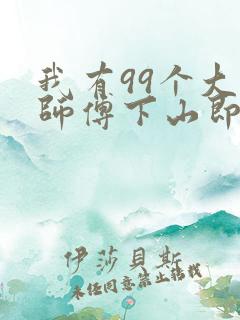 我有99个大
师傅下山即
伊莎貝斯
未经同意禁止转载